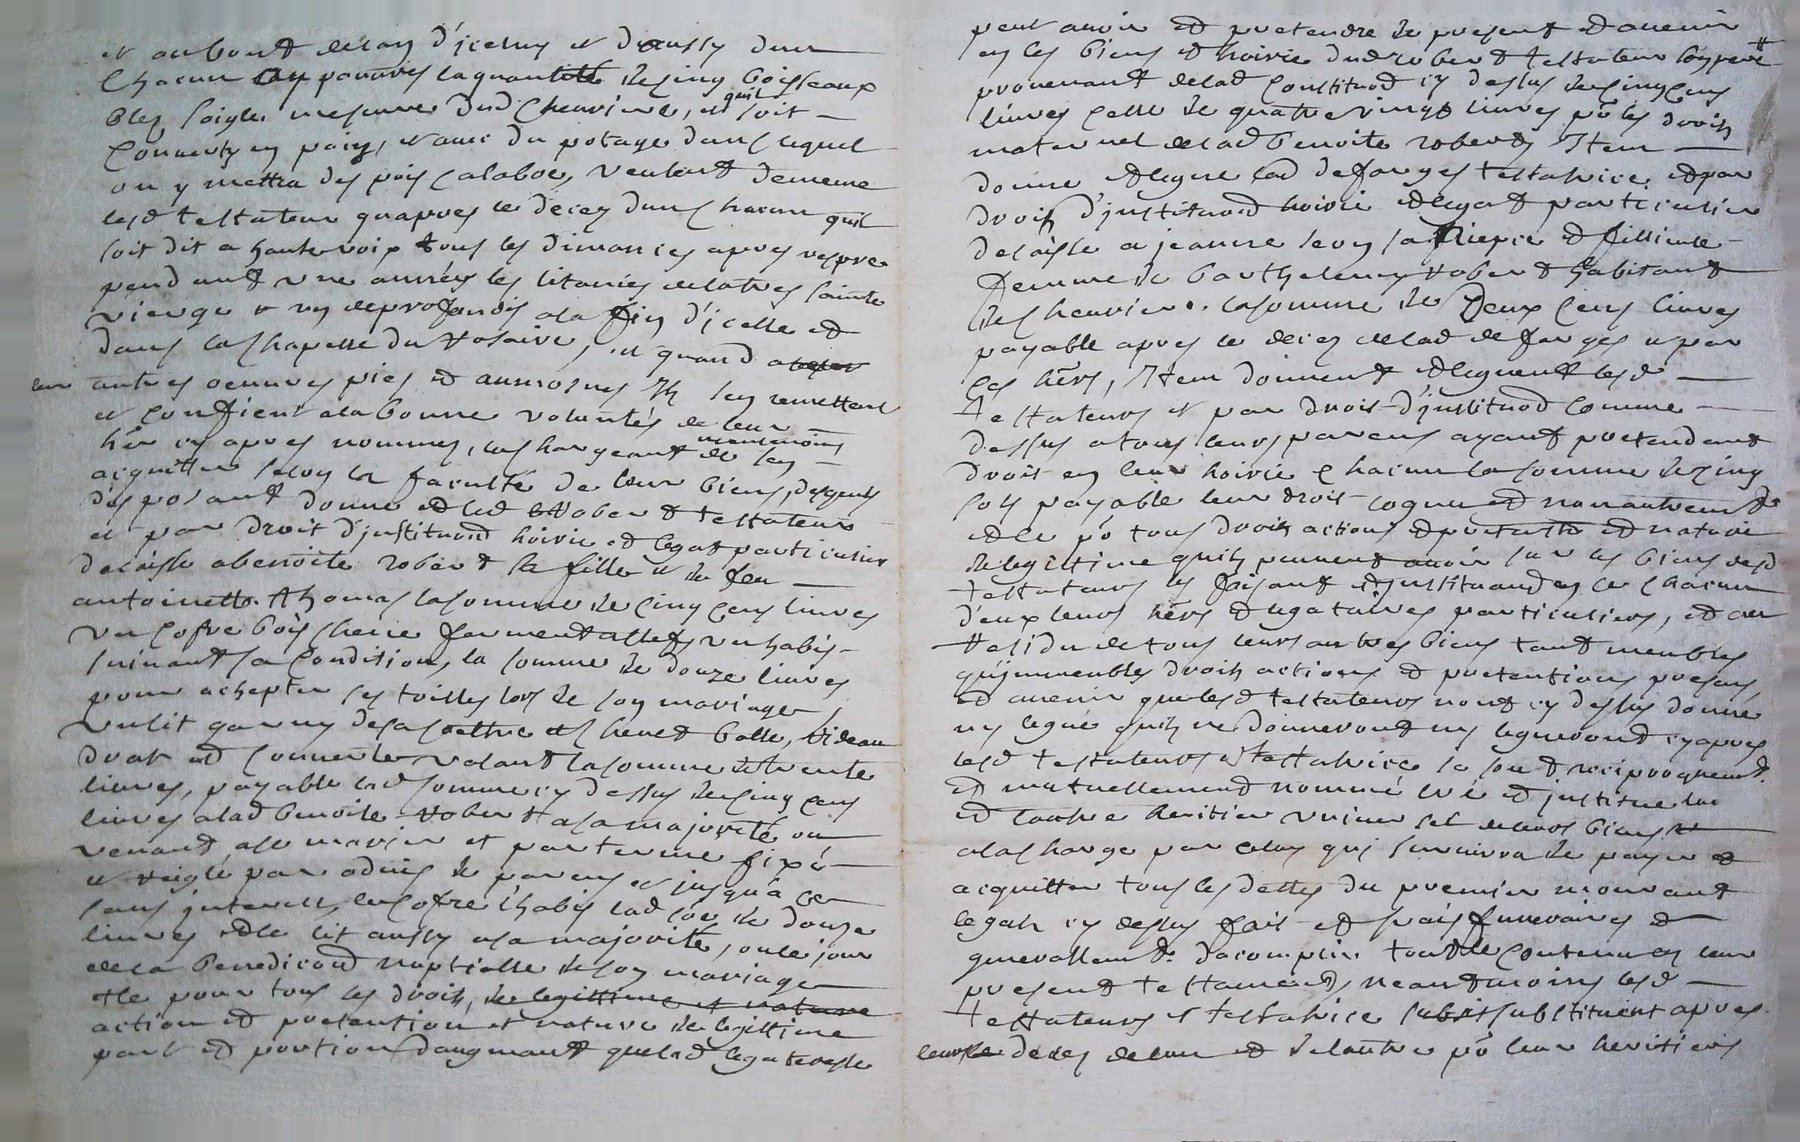 et au bout de lan d'jceluy et d'aussy dun
chacun aux pauvres la quantité de cinq boisseaux
bled soigle mesure dud Chevrieres, quil soit
converty en pain, et avec du potage dans lequel
on y mettra des pois calaboe, veulent de meme
lesd testateur quapres le deces dun chacun quil
soit dit a haute voix tous les dimanches apres vespre
pendant une année les litanies de la tres sainte
vierge & un de profondis a la fin d'jcelle et
dans la chapelle du Rosaire, et quand a
leur autres oeuvres pies et aumosnes Ils sen remettent
et confient a la bonne volontés de leur
hēr cy apres nommés, les chargeant neanmoins de sen
acquitter selon la faculté de leur biens, desquels
disposant donne et led Robert testateur
et par droit d'jnstituōn hoirie et legat particulier
delaisse a benoite robert sa fille et de feu
antoinette thomas la somme de cinq cens livres
un cofre bois chene fermant a clef, un habis
suivant sa condition, la somme de douze livres
pour achepter ses toilles lors de son mariage
un lit garny de sa coettre et chevet balle, rideau
drap et couverte valant la somme de trente
livres, payable lad somme cy dessus de cinq cens
livres a lad benoite Robert a sa majorité ou
venant a se marier et par terme fixé
et reiglé par advis de parens et jusqu'a ce
sans jnterest, le cofre l'habis lad soē de douze
livres et le lit aussy a sa majorité, ou le jour
de la benediction nuptialle de son mariage
et ce pour tous les droits, de legittime et nature
action et pretention et nature de legittime
part et portion d'augmant que lad legateresse
peut avoir et pretendre de present et avenir
en les biens et hoirie dud robert testateur son pere
provenant de lad constituōn cy dessus de cinq cens
livres celle de quatre vingt livres pō les droits
maternel de lad benoite robert, Item
donne et legue lad deforges testatrice et par
droit d'jnstituōn hoirie et legat particulier
delaisse a jeanne levy sa niepce et fillieule
femme de barthelemy Robert habitant
de chevriere la somme de deux cens livres
payable apres le deces de lad deforges et par
ses hērs, Item donnent et leguent lesd
testateurs et par droit d'jnstituōn comme
dessus a tous leurs parens ayant pretendant
droit en leur hoirie chacun la somme de cinq
sols payable leur droit cognu et non autrement
et ce pō tous droits actions et pretention et nature
de legittime quils peuvent avoir sur les biens desd
testateurs les faisant et jnstituand en ce chacun
d'eux leurs hērs et legataires particuliers, et au
Residu de tous leurs autres biens tant meubles
qu'jmmeubles droits actions et pretentions presens
et avenir que lesd testateurs n'ont cy dessus donné
ny legué quils ne donneront ny legueront cy apres
lesd testateurs et testatrice se sont reciproquemt
et mutuellement nommé cré et jnstitue lun
et lautre heritier universel de leurs biens
a la charge par celuy qui survivra de payer et
acquitter tous les dettes du premier mourant
legats cy dessus fait et frais funeraires et
generallemt dacomplir tout le contenu en leur
present testament, neantmoins lesd
testateurs et testatrice substituent apres
leurs deces de lun et de lautre pō leur heritiers